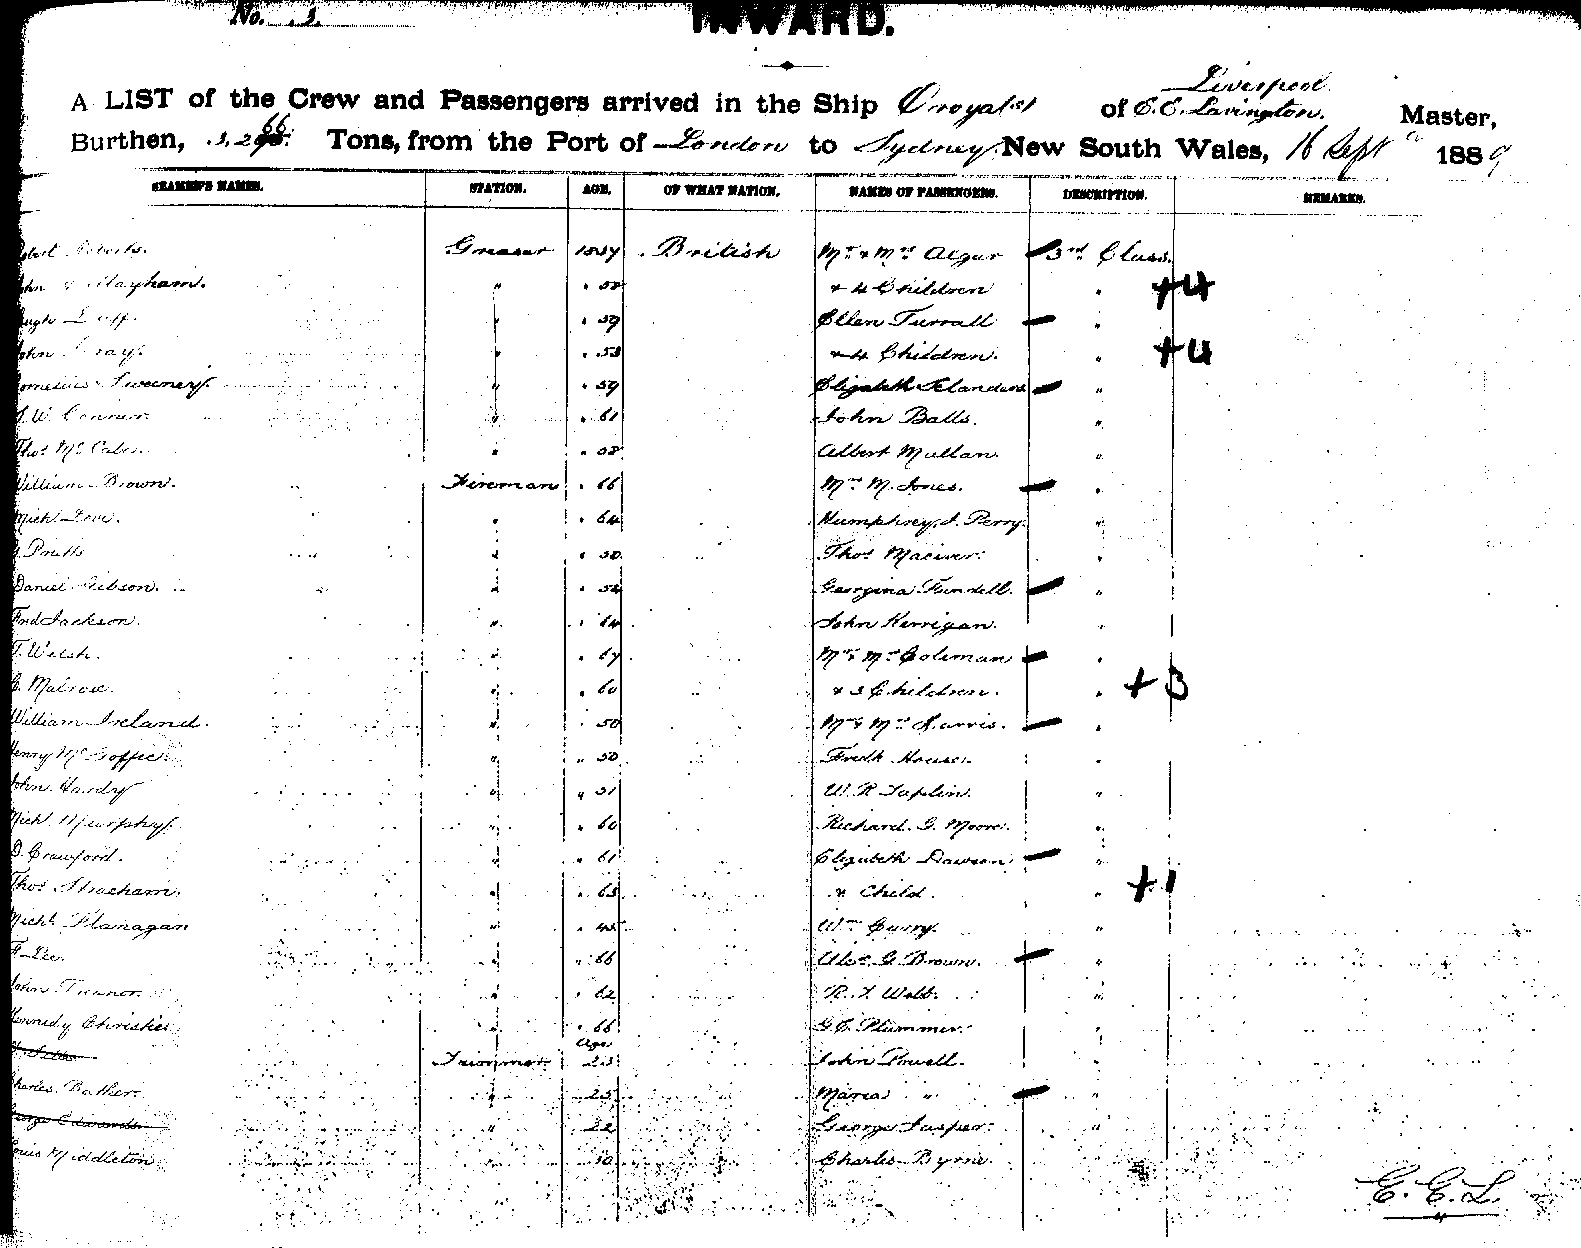 No. 3.
INWARD.
Liverpool.
A LIST of the Crew and Passengers arrived in the Ship of C. E. Lavington. Master,
Burthen, Tons, from the Port of London to Sydney. New South Wales, 16 Sept 1889
SEAMEN'S NAMES. STATION. AGE. OF WHAT NATION. NAMES OF PASSENGERS. DESCRIPTION. REMARKS.
Roberts. Greaser British Mr & Mrs Algar 3rd Class.
Mayham. " " 58 + 4 Children " +4
" " 59 Ellen Turrall "
" " 53 + 4 Children. " +4
Sweeney. " " 59 Elizabeth "
W. Connor. " " 61 John Balls. "
Thos Mc Cabe. " " 58 Albert Mullan. "
William Brown. Fireman " 66 Mrs M. Jones. "
Mich Love. " " 64 Humphrey. J. Perry. "
Pratts " " 50. Thos Maciver. "
Daniel Gibson. " " 52 Georgina Fundell. "
Fred Jackson. " " 64 John Kerrigan. "
T. Welsh. " " 67 Mr & Mrs Coleman "
" " 60 + 3 Children. " + 3
William Ireland. " " 50 Mr & Mrs "
Henry Mc Goffie. " " 50 Fredk House. "
John Hardy " " 51 W. R. Taplin. "
Mich. Murphy. " " 60 Richard. G. Moore. "
D. Crawford. " " 61 Elizabeth Dawson "
Thos Stracham. " " 63 + Child. " +1
Michl Flanagan " " 45 Wm Curry. "
F. Lee. " " 66 Alex. G. Brown. "
John Treanor. " " 62 R. J. Webb. "
Kennedy Christie. " " 66 G. C. Plummer. "
Age
Trimmer 23 John Powell. "
Charles Bather. " 25 Maria " "
George Edwards " 22 George Jasper. "
Louis Middleton " Charles Byrne. "
C. E. L.